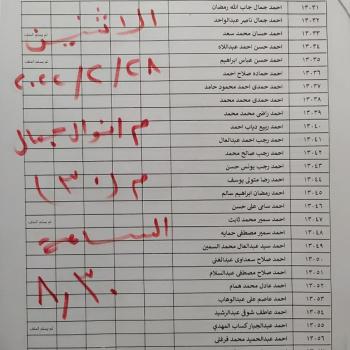 ١٣٠٣١ احمد جمال جاب الله رمضان
١٣٠٣٢ احمد جمال ناصر عبدالواحد
١٣٠٣٣ احمد حسان محمد سعد
١٣٠٣٤ احمد حسن احمد عبداللاه
١٣٠٣٥ احمد حسن عباس ابراهيم
١٣٠٣٦ احمد حماده صلاح احمد
١٣٠٣٧ احمد حمدى احمد محمود حامد
١٣٠٣٨ احمد حمدى محمد محمد
١٣٠٣٩ احمد راضى محمد محمد
١٣٠٤٠ احمد ربيع دياب احمد
١٣٠٤١ احمد رجب احمد عبدالعال
١٣٠٤٢ احمد رجب صالح محمد
١٣٠٤٣ احمد رجب يونس حسن
١٣٠٤٤ احمد رضا متولى يوسف
١٣٠٤٥ احمد رمضان ابراهيم سالم
١٣٠٤٦ احمد سامى على حسن
١٣٠٤٧ احمد سمير محمد ثابت
١٣٠٤٨ احمد سمير مصطفى حمايه
١٣٠٤٩ احمد سيد عبدالعال محمد السمين
١٣٠٥٠ احمد صلاح سعداوى عبدالغنى
١٣٠٥١ احمد صلاح مصطفى عبدالسلام
١٣٠٥٢ احمد عادل محمد همام
١٣٠٥٣ احمد عاصم على عبدالوهاب
١٣٠٥٤ احمد عاطف شوقى عبدالرشيد
١٣٠٥٥ احمد عبدالجبار كساب المهدي
١٣٠٥٦ احمد عبدالحميد محمد قرقفى
الاثنين
٢٠٢٢/٢/٢٨
م انوال جمال
م (٣٠)
الساعه
٨,٣٠